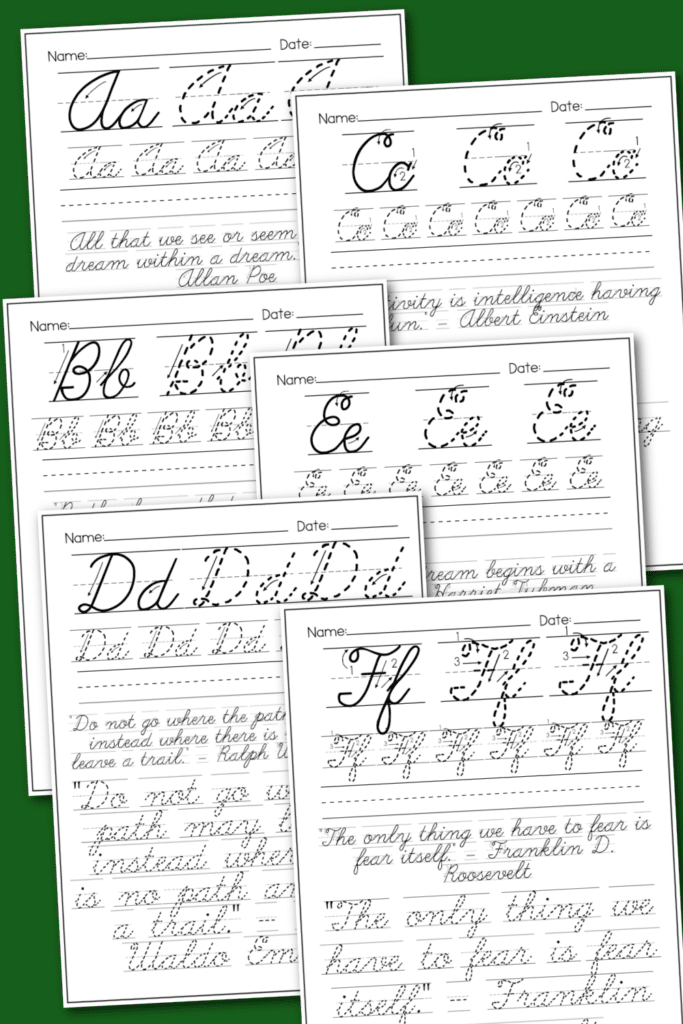 Name: Date:
Aa Aa A
Aa Aa Aa Aa
All that we see or seem
dream within a dream.
Allan Poe
Name: Date:
Cc Cc Cc
Cc Cc Cc Cc Cc Cc Cc
tivity is intelligence having
fun." - Albert Einstein
Name: Date:
Bb Bb
Bb Bb Bb Bb
Name: Date:
Ee Ee Ee
Ee Ee Ee Ee Ee Ee Ee
dream begins with a
Harriet Tubman
Name: Date:
Dd Dd Dd
Dd Dd Dd
"Do not go where the path
instead where there is
leave a trail." - Ralph W
"Do not go w
path may b
instead wher
is no path an
a trail." -
Waldo Em
Name: Date:
Ff Ff Ff
Ff Ff Ff Ff Ff Ff
"The only thing we have to fear is
fear itself." - Franklin D.
Roosevelt
"The only thing we
have to fear is fear
itself." - Franklin